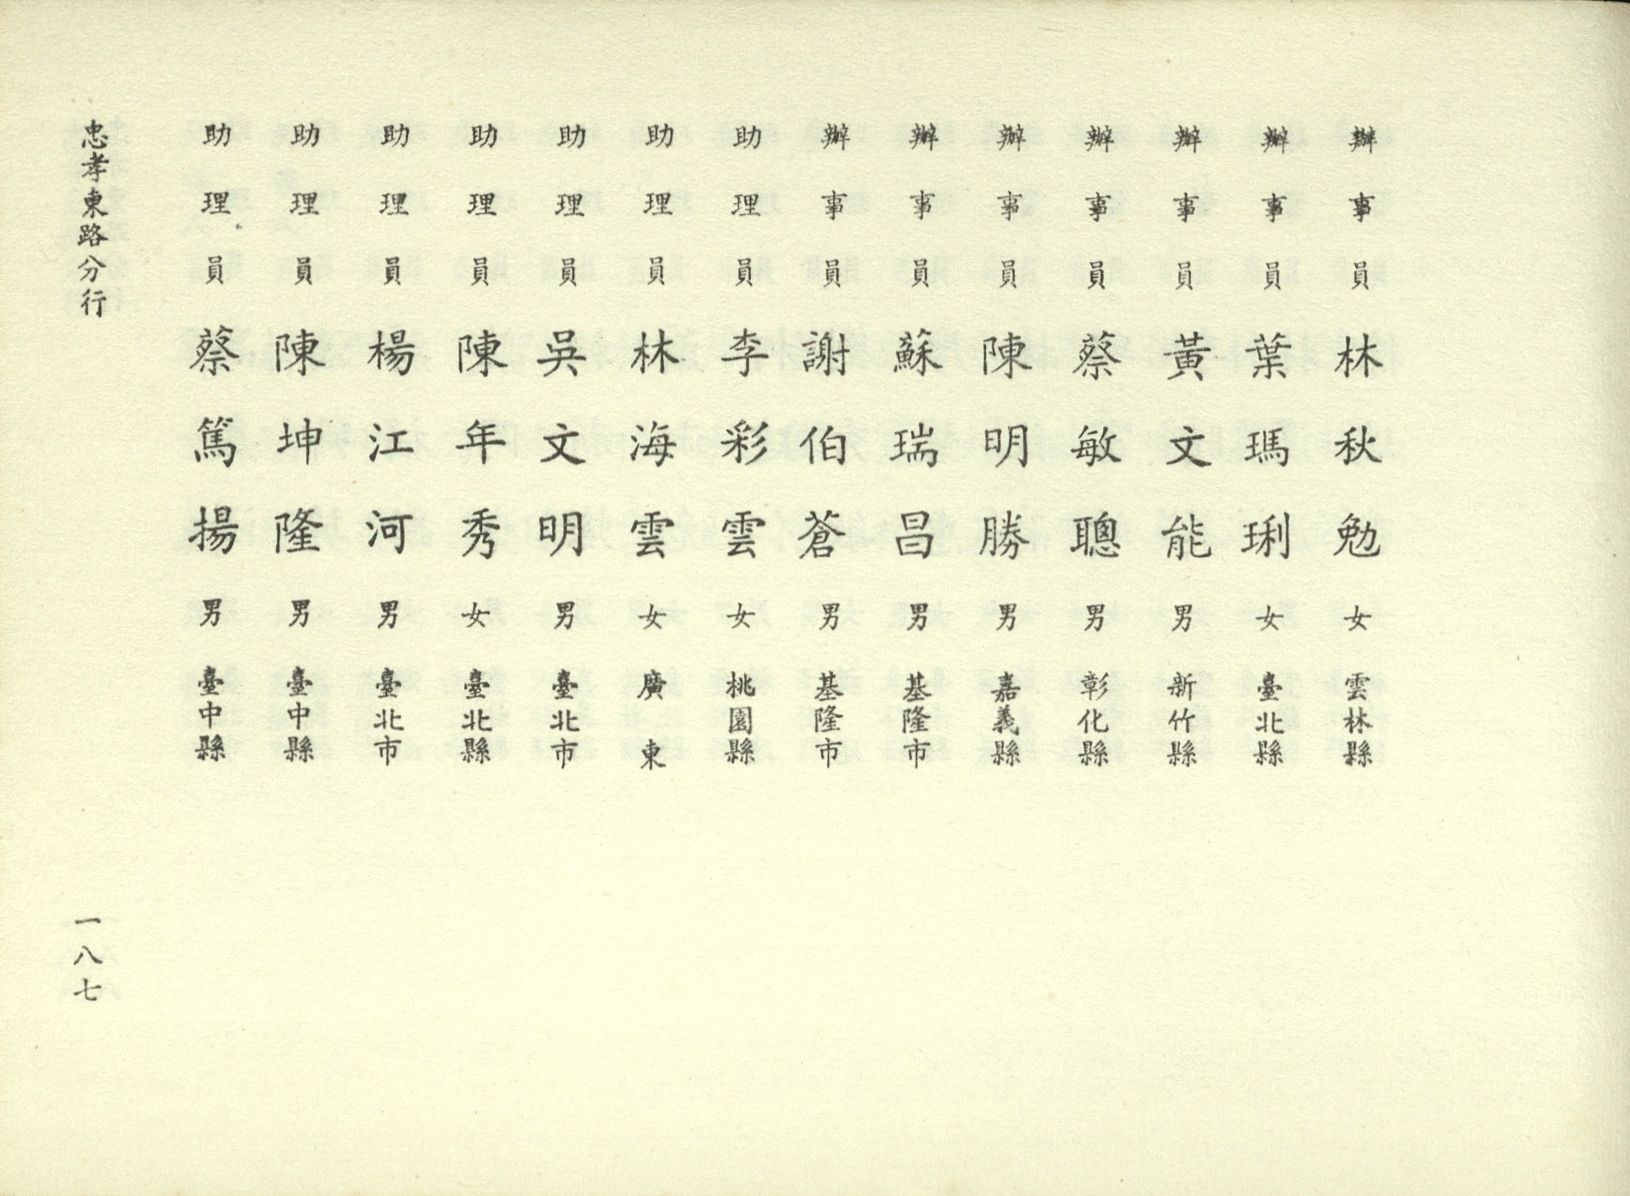 辦事員 林秋勉 女 雲林縣
辦事員 葉瑪琍 女 臺北縣
辦事員 黃文能 男 新竹縣
辦事員 蔡敏聰 男 彰化縣
辦事員 陳明勝 男 嘉義縣
辦事員 蘇瑞昌 男 基隆市
辦事員 謝伯蒼 男 基隆市
助理員 李彩雲 女 桃園縣
助理員 林海雲 女 廣東
助理員 吳文明 男 臺北市
助理員 陳年秀 女 臺北縣
助理員 楊江河 男 臺北市
助理員 陳坤隆 男 臺中縣
助理員 蔡篤揚 男 臺中縣
忠孝東路分行
一八七